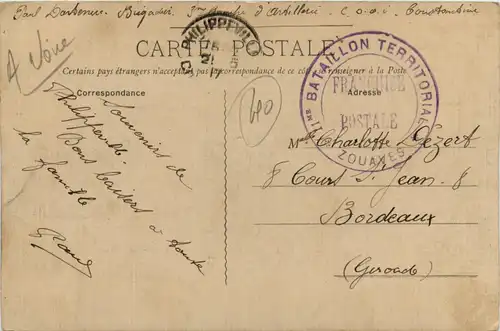 Paul Brigadier d'Artillerie Constantine
A Voir
CARTE POSTALE
Certains pays étrangers n'acceptent pas la correspondance de ce côté. Se renseigner à la Poste
Correspondance
Adresse
PHILIPPEVILLE
BATAILLON TERRITORIAL
ZOUAVES
FRANCHISE
POSTALE
400
Souvenirs de
Philippeville.
Bons baisers à toute
la famille
Paul
Mlle Charlotte Dézert
8 Cours St Jean 8
Bordeaux
(Gironde)